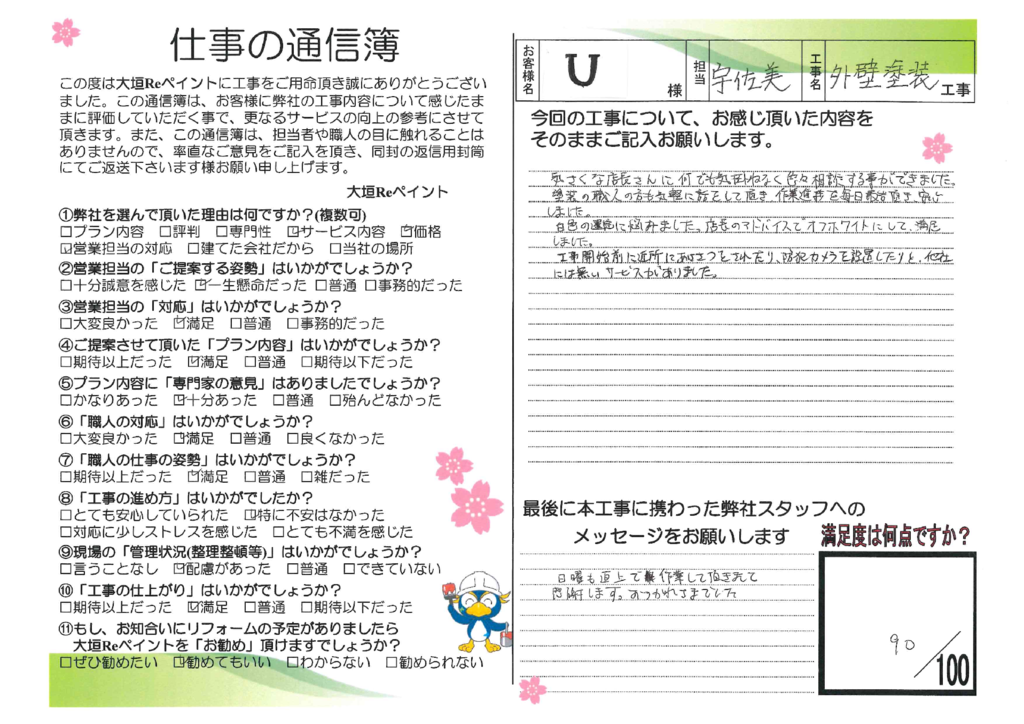 仕事の通信簿
この度は大垣Reペイントに工事をご用命頂き誠にありがとうござい
ました。この通信簿は、お客様に弊社の工事内容について感じたま
まに評価していただく事で、更なるサービスの向上の参考にさせて
頂きます。また、この通信簿は、担当者や職人の目に触れることは
ありませんので、率直なご意見をご記入を頂き、同封の返信用封筒
にてご返送下さいます様お願い申し上げます。
大垣Reペイント
①弊社を選んで頂いた理由は何ですか?(複数可)
□プラン内容 □評判 □専門性 ☑サービス内容 ☑価格
☑営業担当の対応 □建てた会社だから □当社の場所
②営業担当の「ご提案する姿勢」はいかがでしょうか?
□十分誠意を感じた ☑一生懸命だった □普通 □事務的だった
③営業担当の「対応」はいかがでしょうか?
□大変良かった ☑満足 □普通 □事務的だった
④ご提案させて頂いた「プラン内容」はいかがでしょうか?
□期待以上だった ☑満足 □普通 □期待以下だった
⑤プラン内容に「専門家の意見」はありましたでしょうか?
□かなりあった ☑十分あった □普通 □殆んどなかった
⑥「職人の対応」はいかがでしょうか?
□大変良かった ☑満足 □普通 □良くなかった
⑦「職人の仕事の姿勢」はいかがでしょうか?
□期待以上だった ☑満足 □普通 □雑だった
⑧「工事の進め方」はいかがでしたか?
□とても安心していられた ☑特に不安はなかった
□対応に少しストレスを感じた □とても不満を感じた
⑨現場の「管理状況(整理整頓等)」はいかがでしょうか?
□言うことなし ☑配慮があった □普通 □できていない
⑩「工事の仕上がり」はいかがでしょうか?
□期待以上だった ☑満足 □普通 □期待以下だった
⑪もし、お知合いにリフォームの予定がありましたら
大垣Reペイントを「お勧め」頂けますでしょうか?
□ぜひ勧めたい ☑勧めてもいい □わからない □勧められない
お客様名 U 様 担当 宇佐美 工事名 外壁塗装 工事
今回の工事について、お感じ頂いた内容を
そのままご記入お願いします。
気さくな店長さんに何でも気兼ねなく色々相談する事ができました。
塗装の職人の方も気軽に話をして頂き、作業進捗を毎日報告頂き、安心
しました。
白色の選定に悩みました。店長のアドバイスでオフホワイトにして、満足
しました。
工事開始前に近所にあいさつをされたり、防犯カメラを設置したりと、他社
には無いサービスがありました。
最後に本工事に携わった弊社スタッフへの
メッセージをお願いします
日曜も返上で作業して頂きまして
感謝します。おつかれさまでした
満足度は何点ですか?
90/100